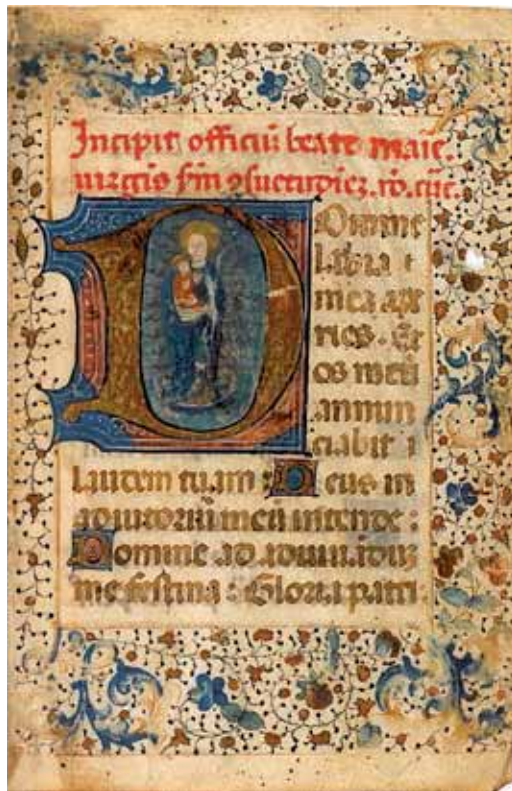 Incipit officiū beate marie.
virgīs sm̄ ꝯsuetudiēz. ro. cūe.
Domine
labia
mea ape
ries. Et
os meū
annun
ciabit
laudem tuam : Deus in
adiutoriū meū intende :
Domine ad adiuuāduz
me festina : Gloria patri